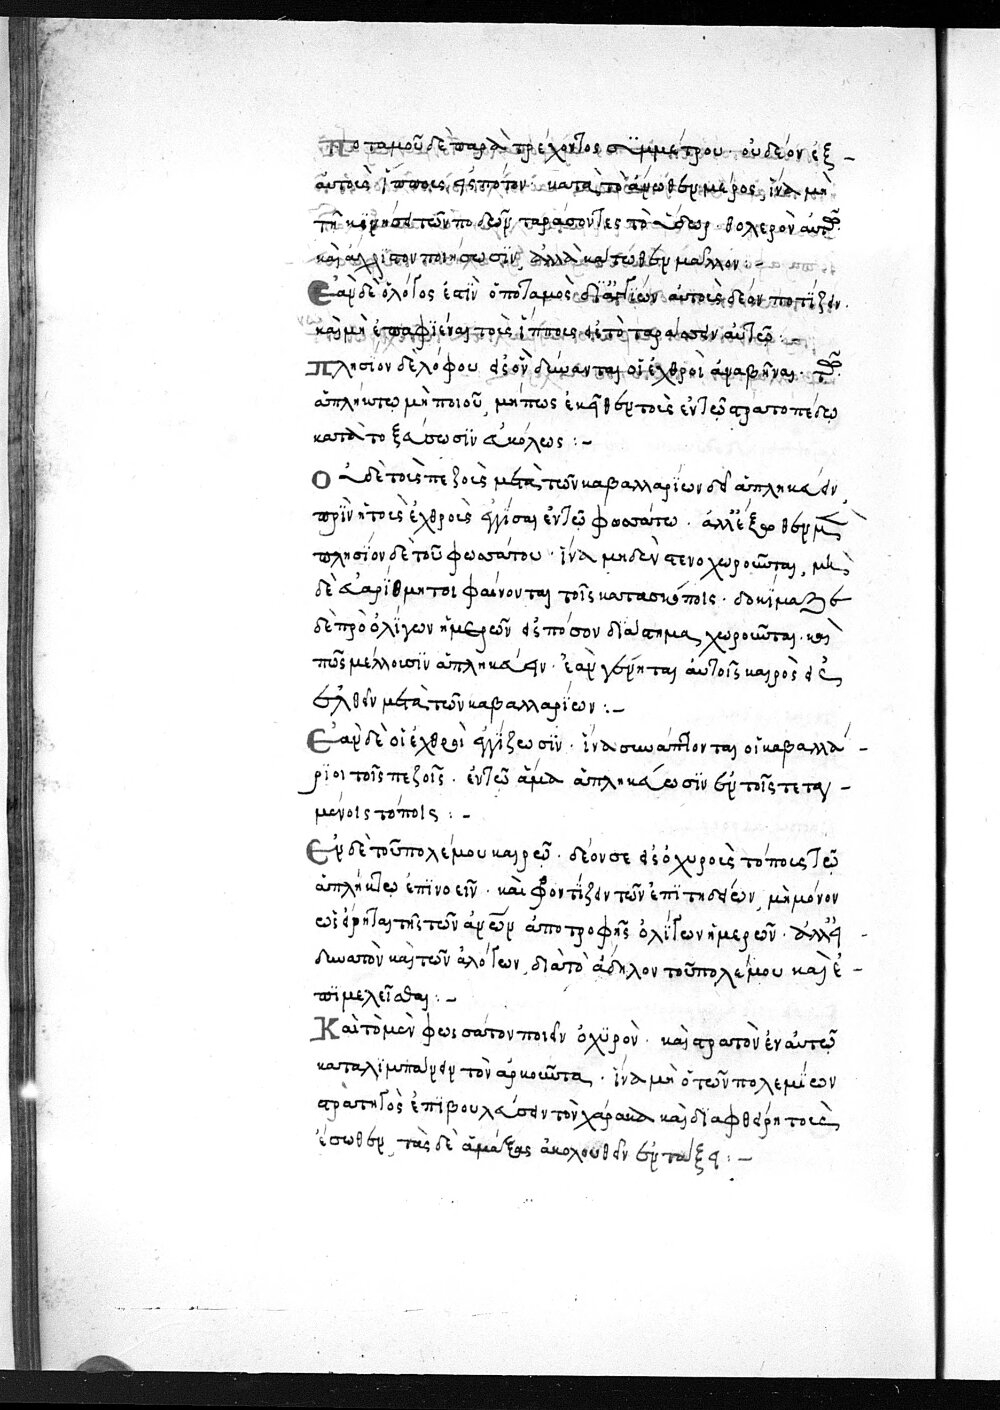 Ποταμοῦ δὲ παρατρέχοντος συμμέτρου· οὐ δέον ἐξ
αὐτοῖς ἵπποις εἰς πότον· κατὰ τὸ ἄνωθεν μέρος, ἵνα μὴ
τῇ κινήσει τῶν ποδῶν ταράσοντες τὸ ὕδωρ· θολερὸν αὐτὸ
καὶ ἄχρηστον ποιήσωσϊν, ἀλλὰ κάτωθεν μᾶλλον :-
Εἂν δὲ ὀλίγος ἐστὶν ὁ ποταμὸς δι' ἀγγΐων αὐτοῖς δέον ποτΐζειν·
καὶ μὴ ἐπαφϊέναι τοῖς ἵπποις εἰς τὸ ταράσσειν αὐτῶ :-
Πλησΐον δὲ λόφου εἰς ὃν δύνανται οἱ ἐχθροὶ ἀναβῆναι· τὸ
ἄπληκτω μὴ ποιοῦ, μήπως ἐκεῖθεν τοῖς ἐν τῶ στρατοπέδω
κατατοξεύσωσϊν εὐκόλως :-
Οὐ δὲ τοῖς πεζοῖς μετὰ τῶν καβαλλαρΐων δεῖ ἀπληκεύειν,
πρῒν ἢ τοῖς ἐχθροῖς ἐγγίσαι ἐν τῶ φωσσάτω· ἀλλ' ἔξωθεν μὲν
πλησΐον δὲ τοῦ φωσσάτου· ἵνα μηδὲν στενοχωροῦνται, μὴ
δὲ εὐαρΐθμητοι φαίνονται τοῖς κατασκόποις· δοκϊμάζειν
δὲ πρὸ ὀλΐγων ἡμερῶν εἰς πόσον δϊάστημα χωροῦνται· καὶ
πῶς μέλλουσϊν ἀπληκεύειν· ἐὰν γένηται αὐτοῖς καιρὸς εἰς
ελθεῖν μετὰ τῶν καβαλλαρΐων :-
Εἂν δὲ οἱ ἐχθροὶ ἐγγΐζωσϊν· ἵνα συνάπτονται οἱ καβαλλά
ρϊοι τοῖς πεζοῖς· ἐν τῶ ἅμα ἀπληκεύωσϊν ἐν τοῖς τεταγ
μένοις τόποις :-
Ἐν δὲ τοῦ πολέμου καιρῶ· δέον σε εἰς ὀχυροῖς τόποις τῶ
ἀπλήκτω ἐπϊνοεῖν· καὶ φροντΐζειν τῶν ἐπϊτηδείων, μὴ μόνον
ὡς εἴρηται τῆς τῶν ἀνῶν ἀποτροφῆς ὀλΐγων ἡμερῶν· ἀλλ' εἰ
δυνατὸν καὶ τῶν ἀλόγων, διὰ τὸ ἄδηλον τοῦ πολέμου καὶ ἐ
πϊμελεῖσθαι :-
Καὶ τὸ μὲν φωσσάτον ποιεῖν ὀχϋρὸν· καὶ στρατὸν ἐν αὐτῶ
καταλϊμπάνειν τὸν ἀρκοῦντα· ἵνα μὴ ὁ τῶν πολεμΐων
στρατηγὸς ἐπϊβουλεύσειν τὸν χάρακα καὶ διαφθείρη τοῖς
ἔσωθεν, τὰς δὲ ἁμάξας ἀκολουθεῖν ἐν τάξει :-